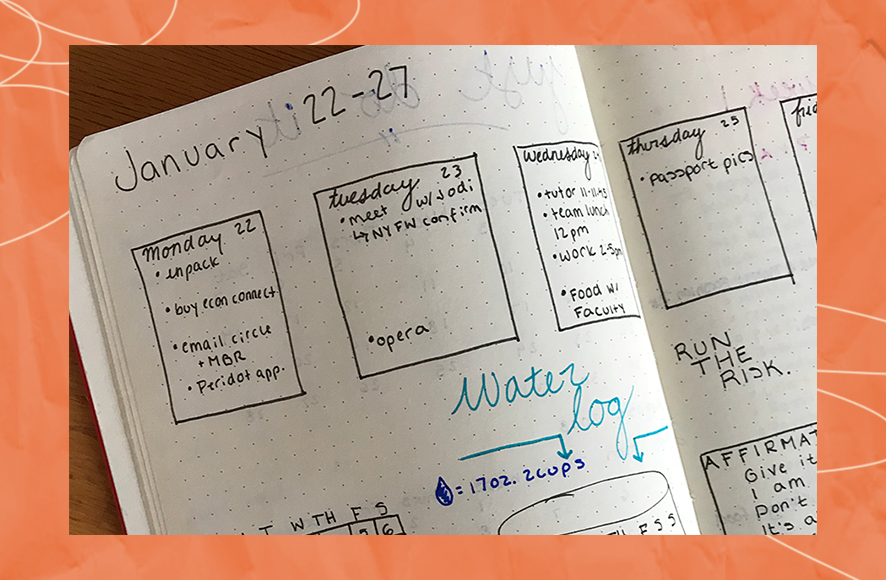 January 22-27
just do it
monday 22
• unpack
• buy econ connect
• email circle
+ MBR
• Peridot app.
tuesday 23
• meet w/ Jodi
↳ NYFW confirm
• opera
wednesday 24
• tutor 11-11:45
• team lunch
12pm
• work 2-5pm
• Food w/
Faculty
thursday 25
• passport pics
frid
Water
log
= 17oz. 2cups
T W TH F S
5 6
F S S
RUN
THE
RISK.
AFFIRMAT
Give it
I am
Don't
It's a